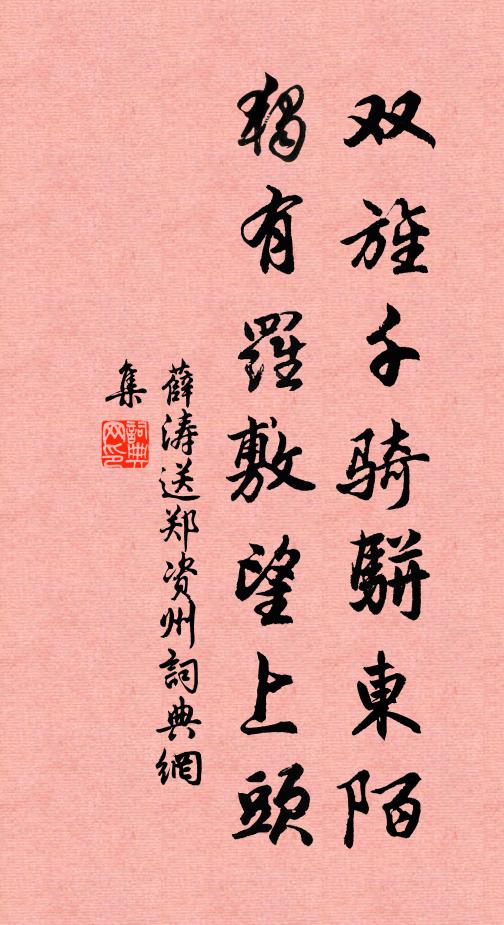 双旌千骑駢東陌
獨有羅敷望上頭
薛涛送郑资州詞典網
集
詞典
网印